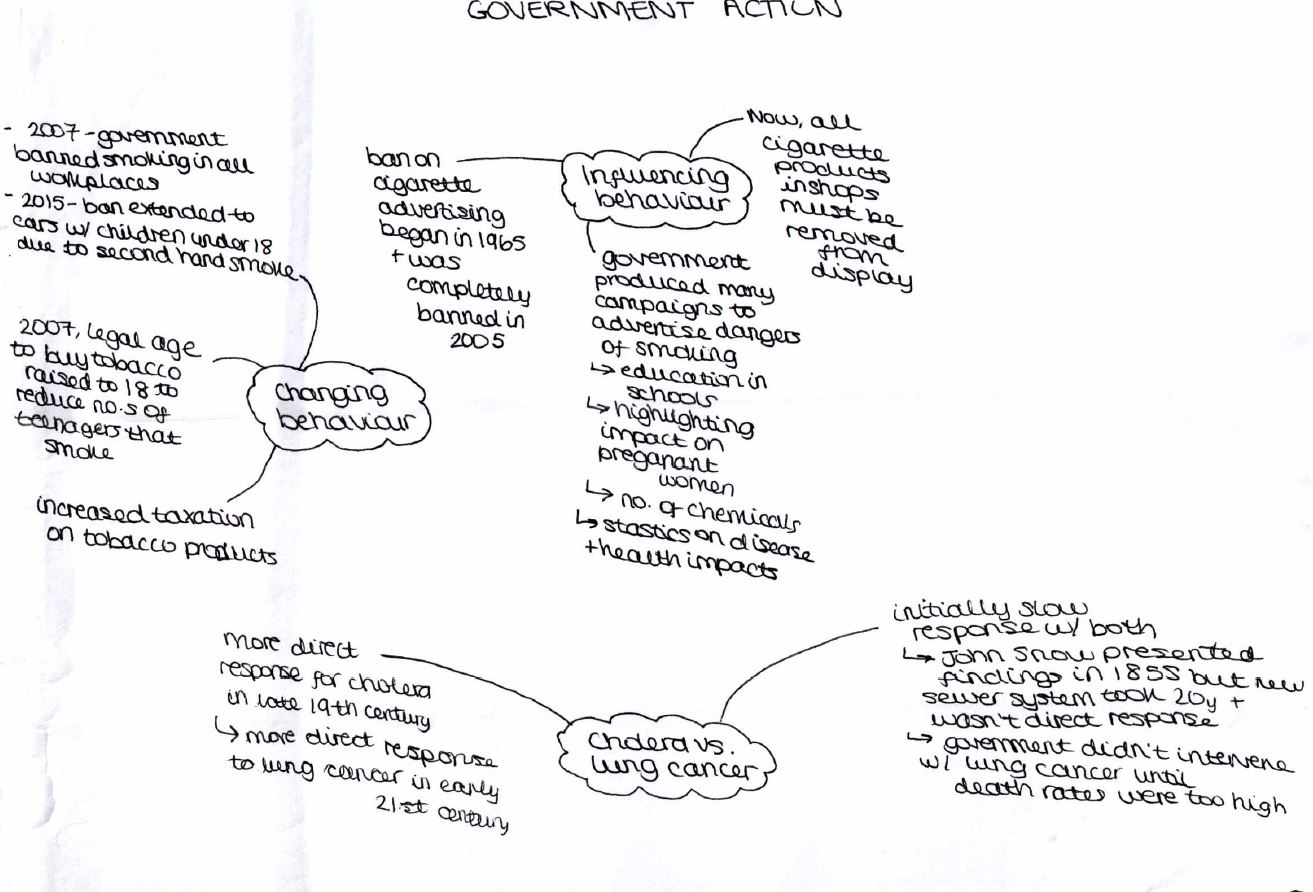 GOVERNMENT ACTION
- 2007 - government
banned smoking in all
workplaces
- 2015 - ban extended to
cars w/ children under 18
due to second hand smoke
2007, legal age
to buy tobacco
raised to 18 to
reduce no.s of
teenagers that
smoke
Changing
behaviour
increased taxation
on tobacco products
ban on
cigarette
advertising
began in 1965
+ was
completely
banned in
2005
Influencing
behaviour
Now, all
cigarette
products
in shops
must be
removed
from
display
government
produced many
campaigns to
advertise dangers
of smoking
↳ education in
schools
↳ highlighting
impact on
preganant
women
↳ no. of chemicals
↳ stastics on disease
+ health impacts
more direct
response for cholera
in late 19th century
↳ more direct response
to lung cancer in early
21st century
Cholera vs.
lung cancer
initially slow
response w/ both
↳ John Snow presented
findings in 1855 but new
sewer system took 20y +
wasn't direct response
↳ government didn't intervene
w/ lung cancer until
death rates were too high